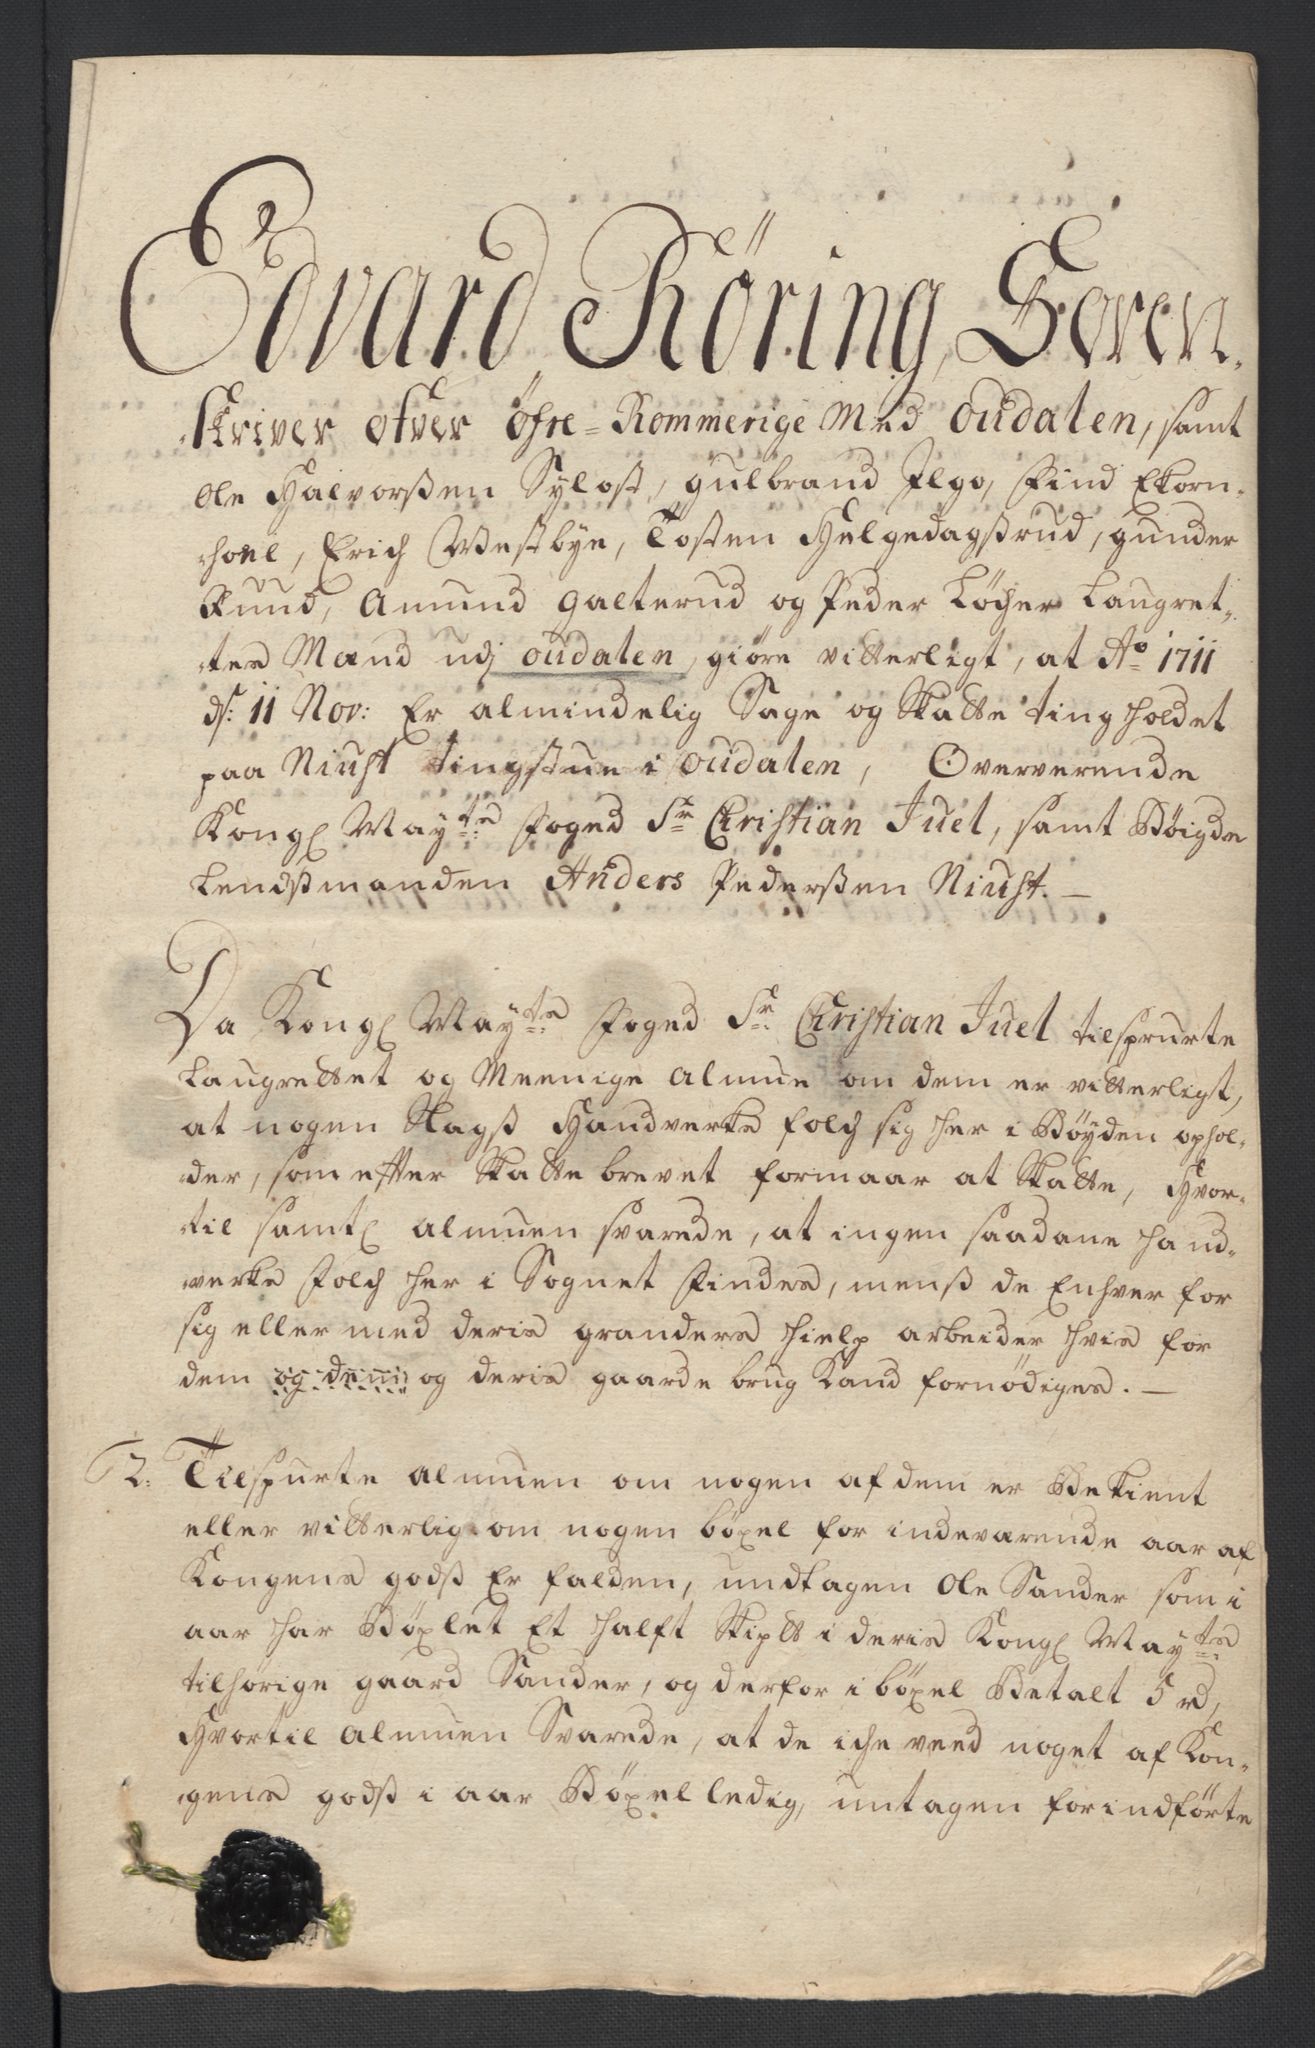 Edvard Röring, Soren-
skriver ofver öfre-Rommerige Med oudalen, samt
Ole Halvorßen Sylost, gulbrand Ilgo, Find Ekorn-
hoel, Erich Westbye, Tosten Helgedagstrud, gunder
Kund, Amund galterud og Peder Löcher Laugret-
tes Mænd udj oudalen, giöre vitterligt, at Ao 1711
ds: 11 Nov: Er almindelig Sage og Skatte ting holdet
paa Niust tingstue i oudalen, Overværende
Kongl Mayts foged Sr Christian Juel, samt Böigde
Lendsmanden Anders Pederßen Niust. —
Da Kongl Mayts foged Sr. Christian Juel tilspurte
Laugrettet og Meenige Almue om dem er vitterligt,
at nogen Slags Handverks folch sig her i Böyden ophol-
der, som efter Skatte brevet formaar at Skatte, Hvor-
til samtl Almuen svarede, at ingen saadane hand-
verks folch her i Sognet findes, mens de Enhver for
sig eller med deris granders hielp arbeider hvis for
dem og dem og deris gaarde brug Kand fornödiges. —
2. Tilspurte Almuen om nogen af dem er Bekient
eller vitterlig om nogen böxel for indeværende aar af
Kongens gods Er falden, undtagen Ole Sander som i
aar har Böxlet Et halft Skipd i deris Kongl Mayts
tilhörige gaard Sander, og derfor i böxel Betalt 5 rd,
Hvortil Almuen Svarede, at de iche veed noget af Kon-
gens gods i aar Böxel ledig, untagen forindförte